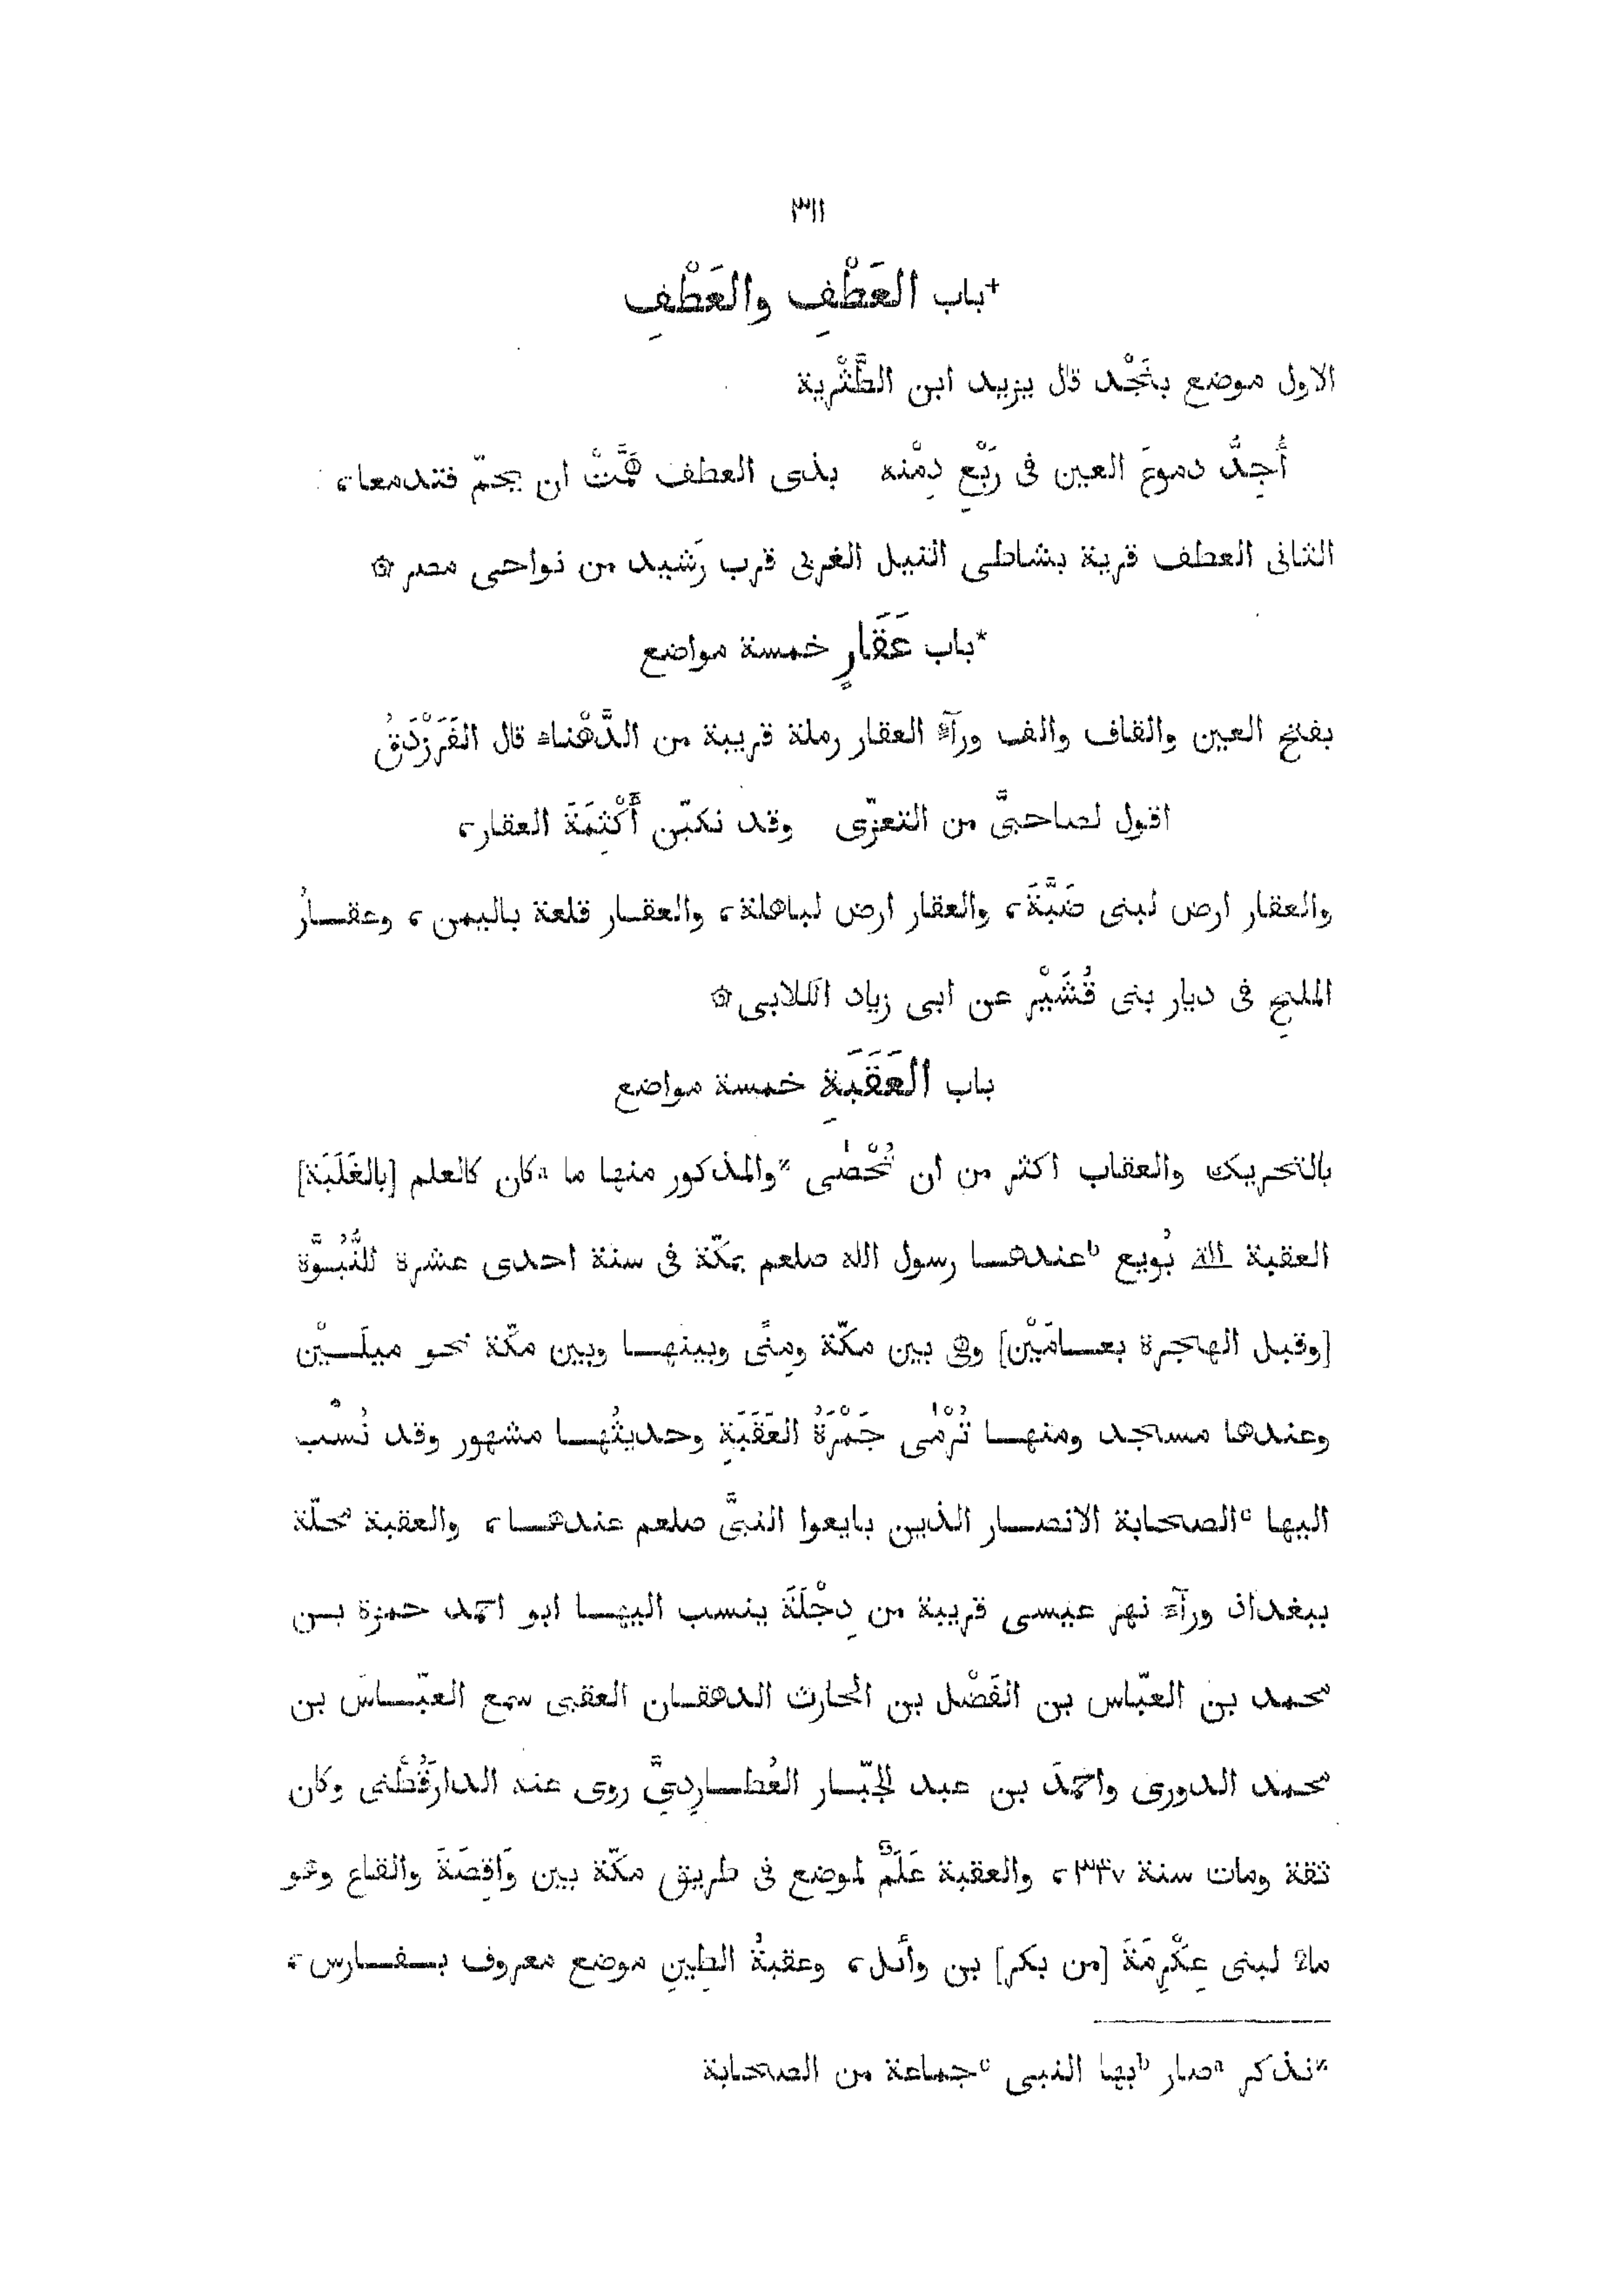 ٣١١
+باب العَطْفِ والعَطْفِ
الاول موضع بنَجْد قال يزيد ابن الطَّثْرية
أُجِدُّ دموعَ العين فى رَبْعِ دِمْنه بذى العطف هَمَّتْ ان يحمّ فتدمعا،
الثانى العطف قرية بشاطى النيل الغربى قرب رَشيد من نواحى مصر ۞
*باب عَقَارٍ خمسة مواضع
بفتح العين والقاف والف ورآء العقار رملة قريبة من الدَّهْناء قال الفَرَزْدَقُ
اقول لصاحبىَّ من التعزّى وقد نكبّن أَكْثِبَةَ العقار،
والعقار ارض لبنى ضَبَّةَ، والعقار ارض لباهلة، والعقار قلعة باليمن، وعقارُ
الملحِ فى ديار بنى قُشَيْر عن ابى زياد الكلابى ۞
باب العَقَبَةِ خمسة مواضع
بالتحريك والعقاب اكثر من ان تُحْصٰى zوالمذكور منها ما aكان كالعلم [بالغَلَبَة]
العقبة الّتى بُويع bعندها رسول الله صلعم بمكّة فى سنة احدى عشرة للنُّبُوَّة
[وقبل الهجرة بعامَيْن] وهى بين مكّة ومِنًى وبينها وبين مكّة نحو ميلَيْن
وعندها مسجد ومنها تُرْمٰى جَمْرَةُ العَقَبَةِ وحديثُها مشهور وقد نُسب
اليها cالصحابة الانصار الذين بايعوا النبىَّ صلعم عندها، والعقبة محلّة
ببغداذ ورآء نهر عيسى قريبة من دِجْلَةَ ينسب اليها ابو احمد حمزة بن
محمد بن العبّاس بن الفَضْل بن الحارث الدهقان العقبى سمع العبّاسَ بن
محمد الدورى واحمدَ بن عبد الجبّار العُطارِدِىَّ روى عنه الدارقُطْنى وكان
ثقة ومات سنة ٣٤٧، والعقبة عَلَمٌ لموضع فى طريق مكّة بين وَاقِصَةَ والقاع وهو
ماء لبنى عِكْرِمَةَ [من بكر] بن وآئل، وعقبةُ الطِينِ موضع معروف بفارس،
zنذكر aصار bبها النبى cجماعة من الصحابة